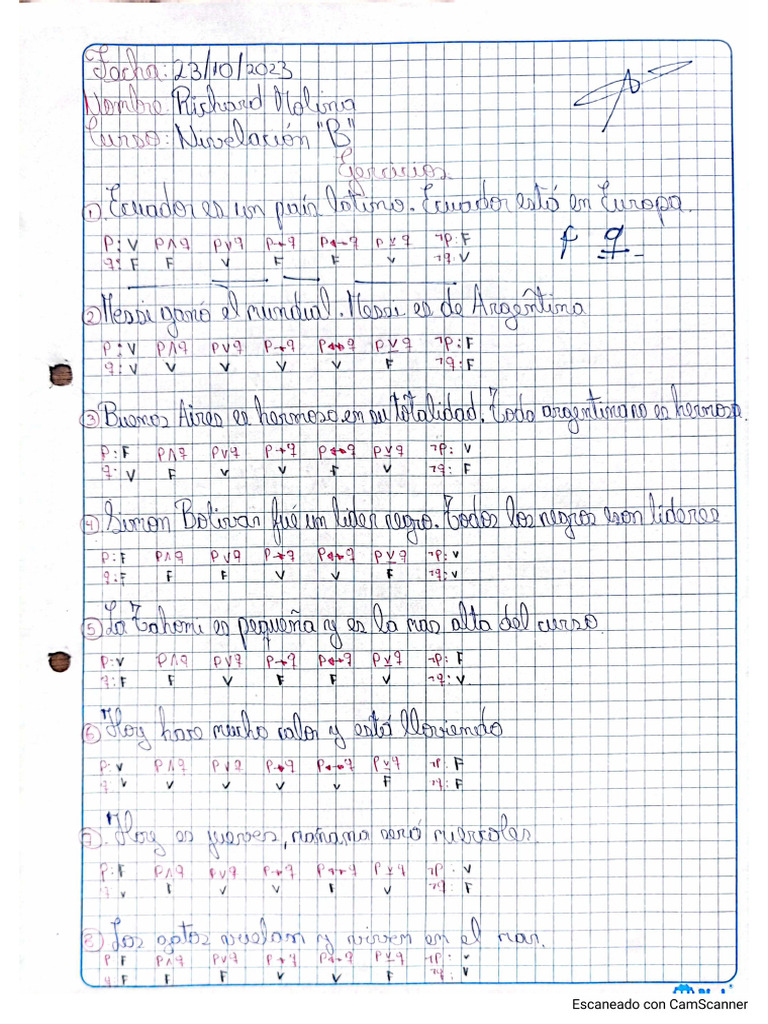 Fecha: 23/10/2023
Nombre: Richard Molina
Curso: Nivelación "B"
Ejercicios
① Ecuador es un país latino. Ecuador está en Europa.
P: V P∧q P∨q P→q P↔q P⊻q ¬P: F
q: F F V F F V ¬q: V
f q
② Messi ganó el mundial. Messi es de Argentina
P: V P∧q P∨q P→q P↔q P⊻q ¬P: F
q: V V V V V F ¬q: F
③ Buenos Aires es hermoso en su totalidad. Todo argentino no es hermoso.
P: F P∧q P∨q P→q P↔q P⊻q ¬P: V
q: V F V V F V ¬q: F
④ Simon Bolivar fué un lider negro. Todos los negros son lideres
P: F P∧q P∨q P→q P↔q P⊻q ¬P: V
q: F F F V V F ¬q: V
⑤ La es pequeña y es la mas alta del curso.
P: V P∧q P∨q P→q P↔q P⊻q ¬P: F
q: F F V F F V ¬q: V
⑥ Hoy hace mucho calor y está lloviendo
P: V P∧q P∨q P→q P↔q P⊻q ¬P: F
q V V V V V F ¬q: F
⑦. Hoy es jueves, mañana será miercoles.
P: F P∧q P∨q P→q P↔q P⊻q ¬P: V
q V F V V F V ¬q: F
⑧ Los gatos vuelan y viven en el mar.
P F P∧q P∨q P→q P↔q P⊻q ¬P: V
q F F F V V F ¬q: V
Escaneado con CamScanner